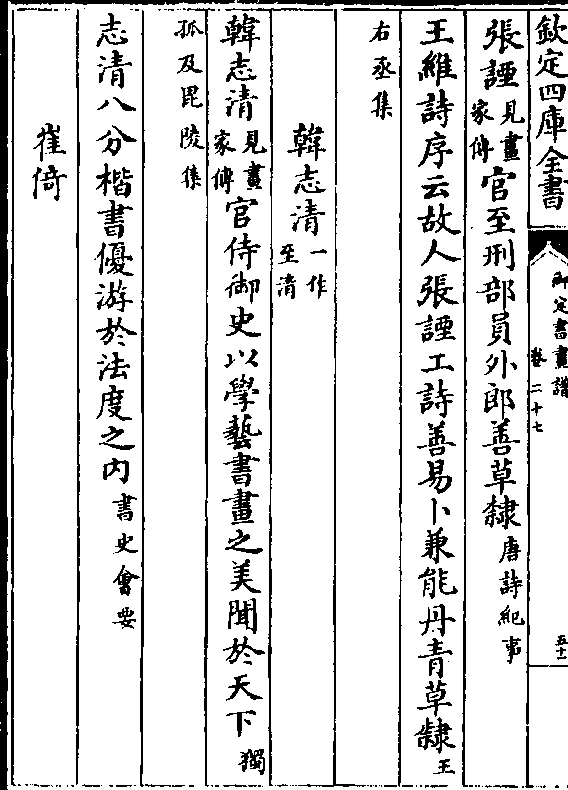 欽定四庫全書
御定書畫譜
卷二十七
五十一
張諲見畫家傳官至刑部員外郎善草隸唐詩紀事
王維詩序云故人張諲工詩善易卜兼能丹青草隸王
右丞集
韓志清一作至清
韓志清見畫家傳官侍御史以學藝書畫之美聞於天下獨
孤及毘陵集
志清八分楷書優游於法度之內書史會要
崔倚